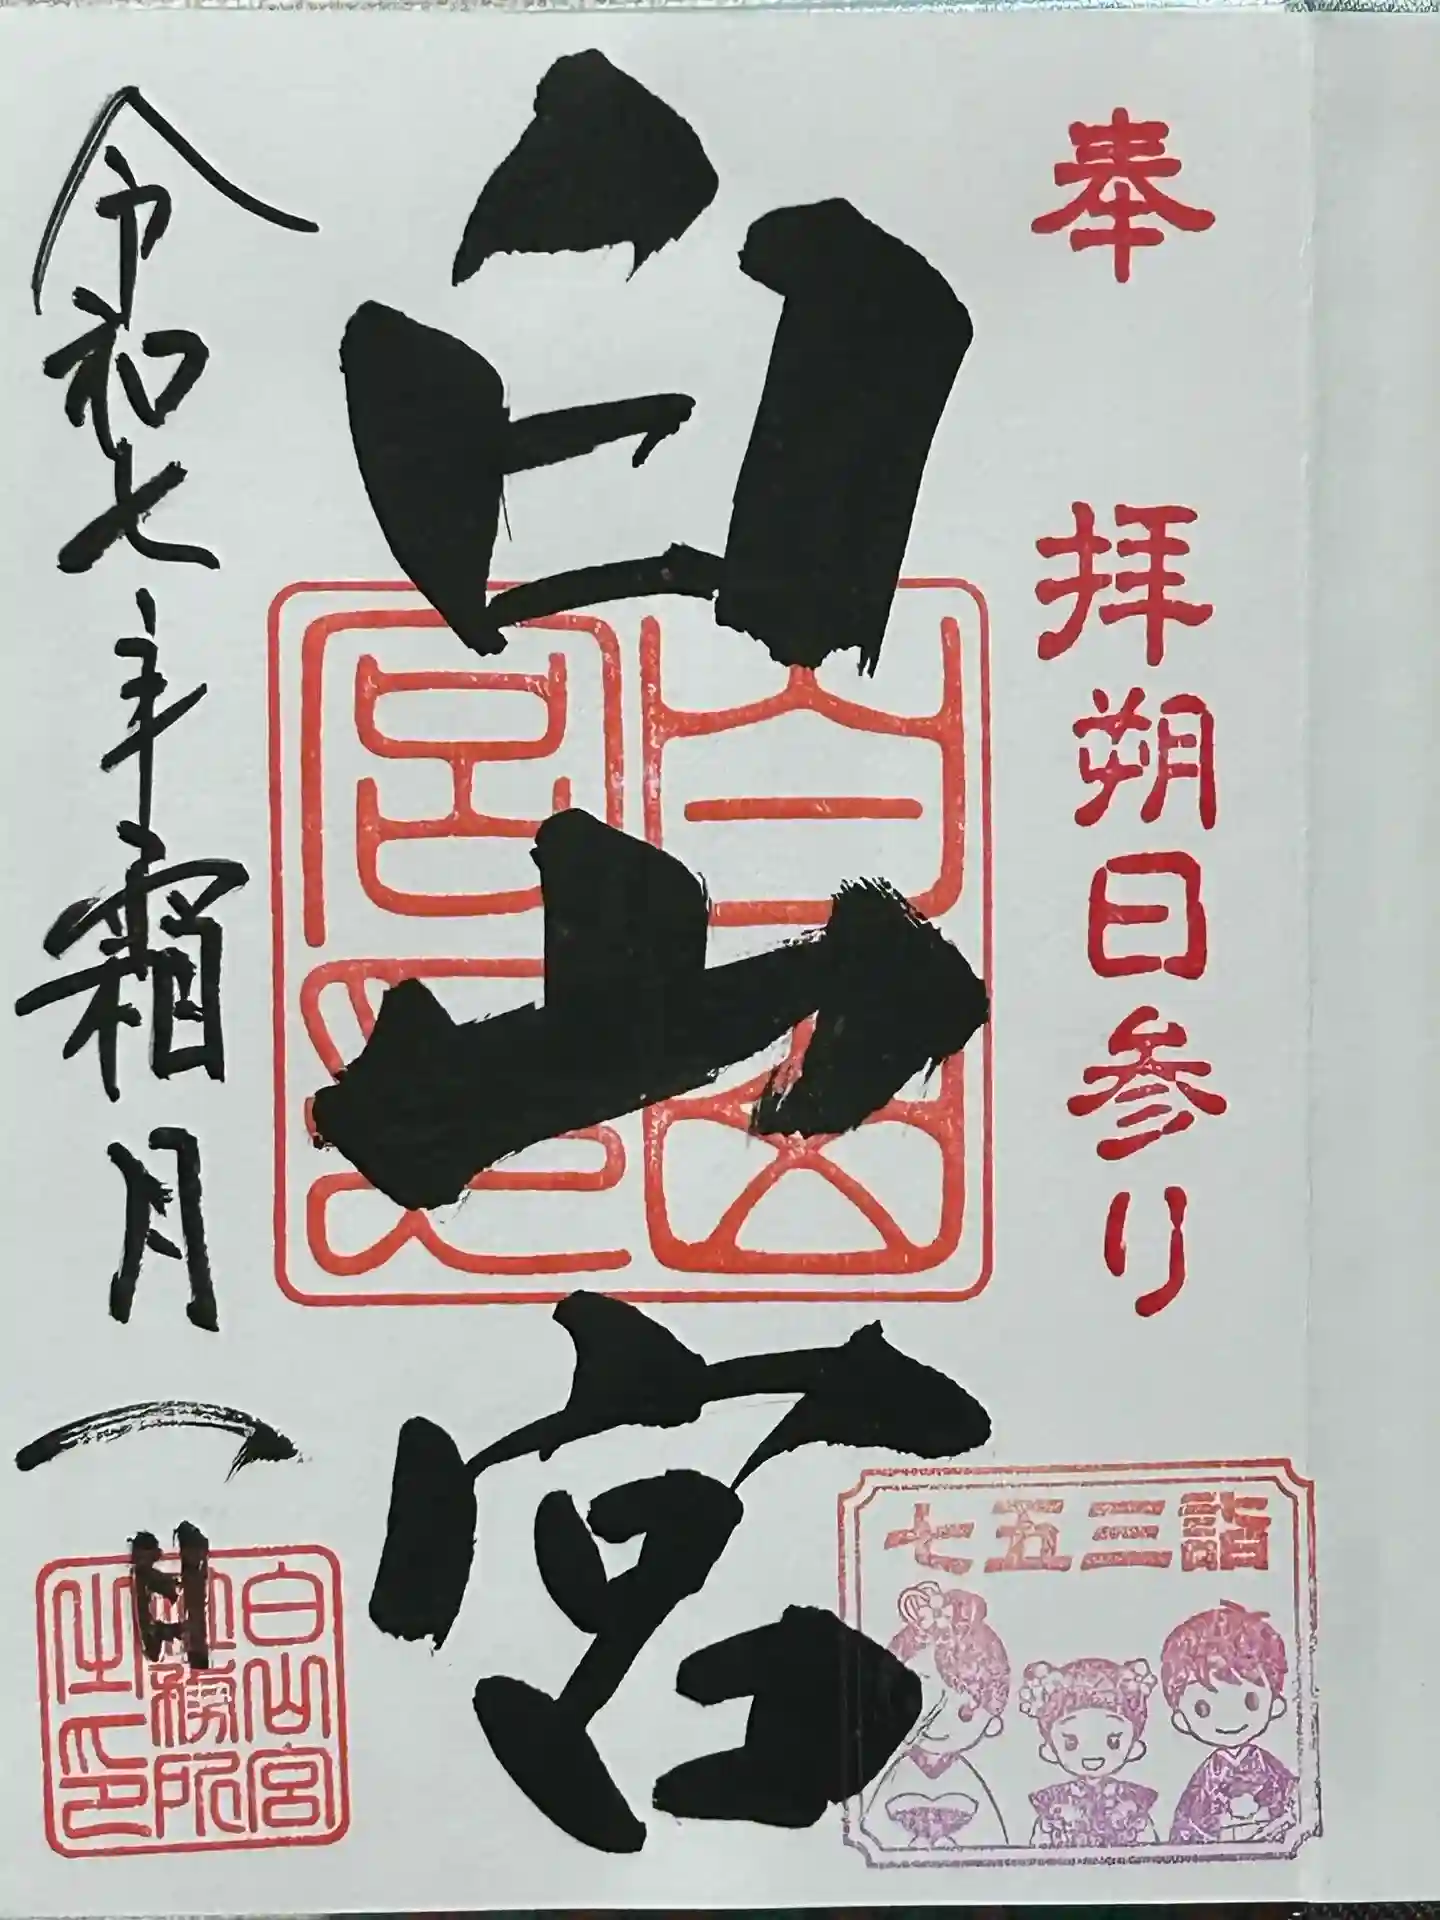 奉拝 朔日参り
白山宮
白山宮印
令和七年霜月一日
白山宮
社務所
之印
七五三詣